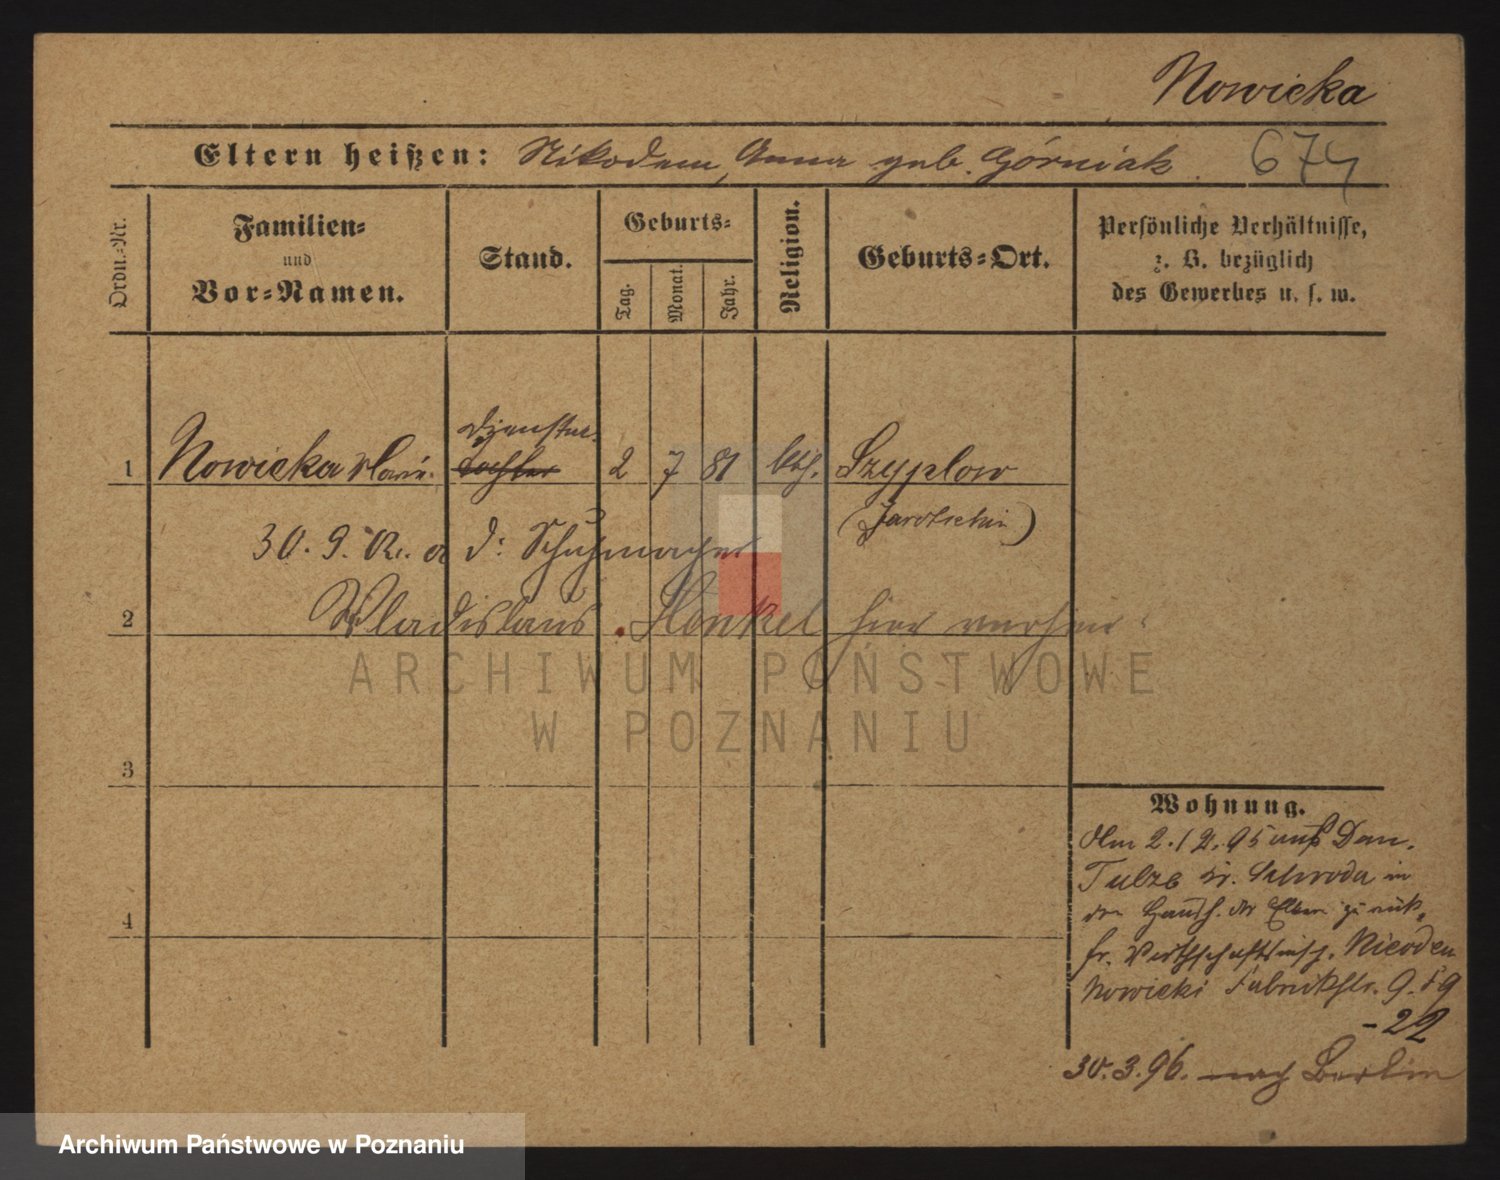 Nowicka
Eltern heißen: Nikodem, Anna geb. Górniak.
674
Ordn.-Nr.
Familien-
und
Vor-Namen.
Stand.
Geburts-
Tag.
Monat.
Jahr.
Religion.
Geburts-Ort.
Persönliche Verhältnisse,
z. B. bezüglich
des Gewerbes u. s. w.
Dienstm.
1 Nowicka Marie. Tochter 2 7 81 kth. Szyplow
(Jarotschin)
30. 9. 02. a d: Schuhmacher
2 Wladislaus Henkel hier verh.
3
4
Wohnung.
Am 2.12.95 aus Dom.
Tulze Kr. Schroda in
den Haush. der Eltern zurück,
fr. Wirthschaftsinsp. Nicodem
Nowicki Fabrikstr. 9.
-22
30.3.96. nach Berlin
ARCHIWUM PAŃSTWOWE
W POZNANIU
Archiwum Państwowe w Poznaniu